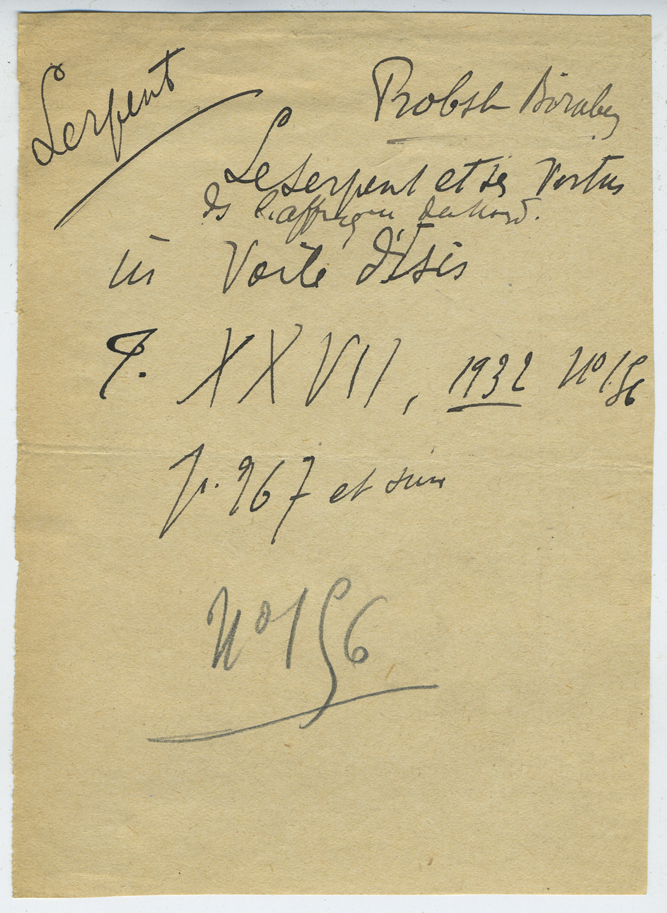 Serpent
Probst Birabey
Le serpent et ses Vertus
ds l'affrique du Nord.
in Voile d'Isis
T. XXVII, 1932 No 156
p. 967 et suiv
No 156